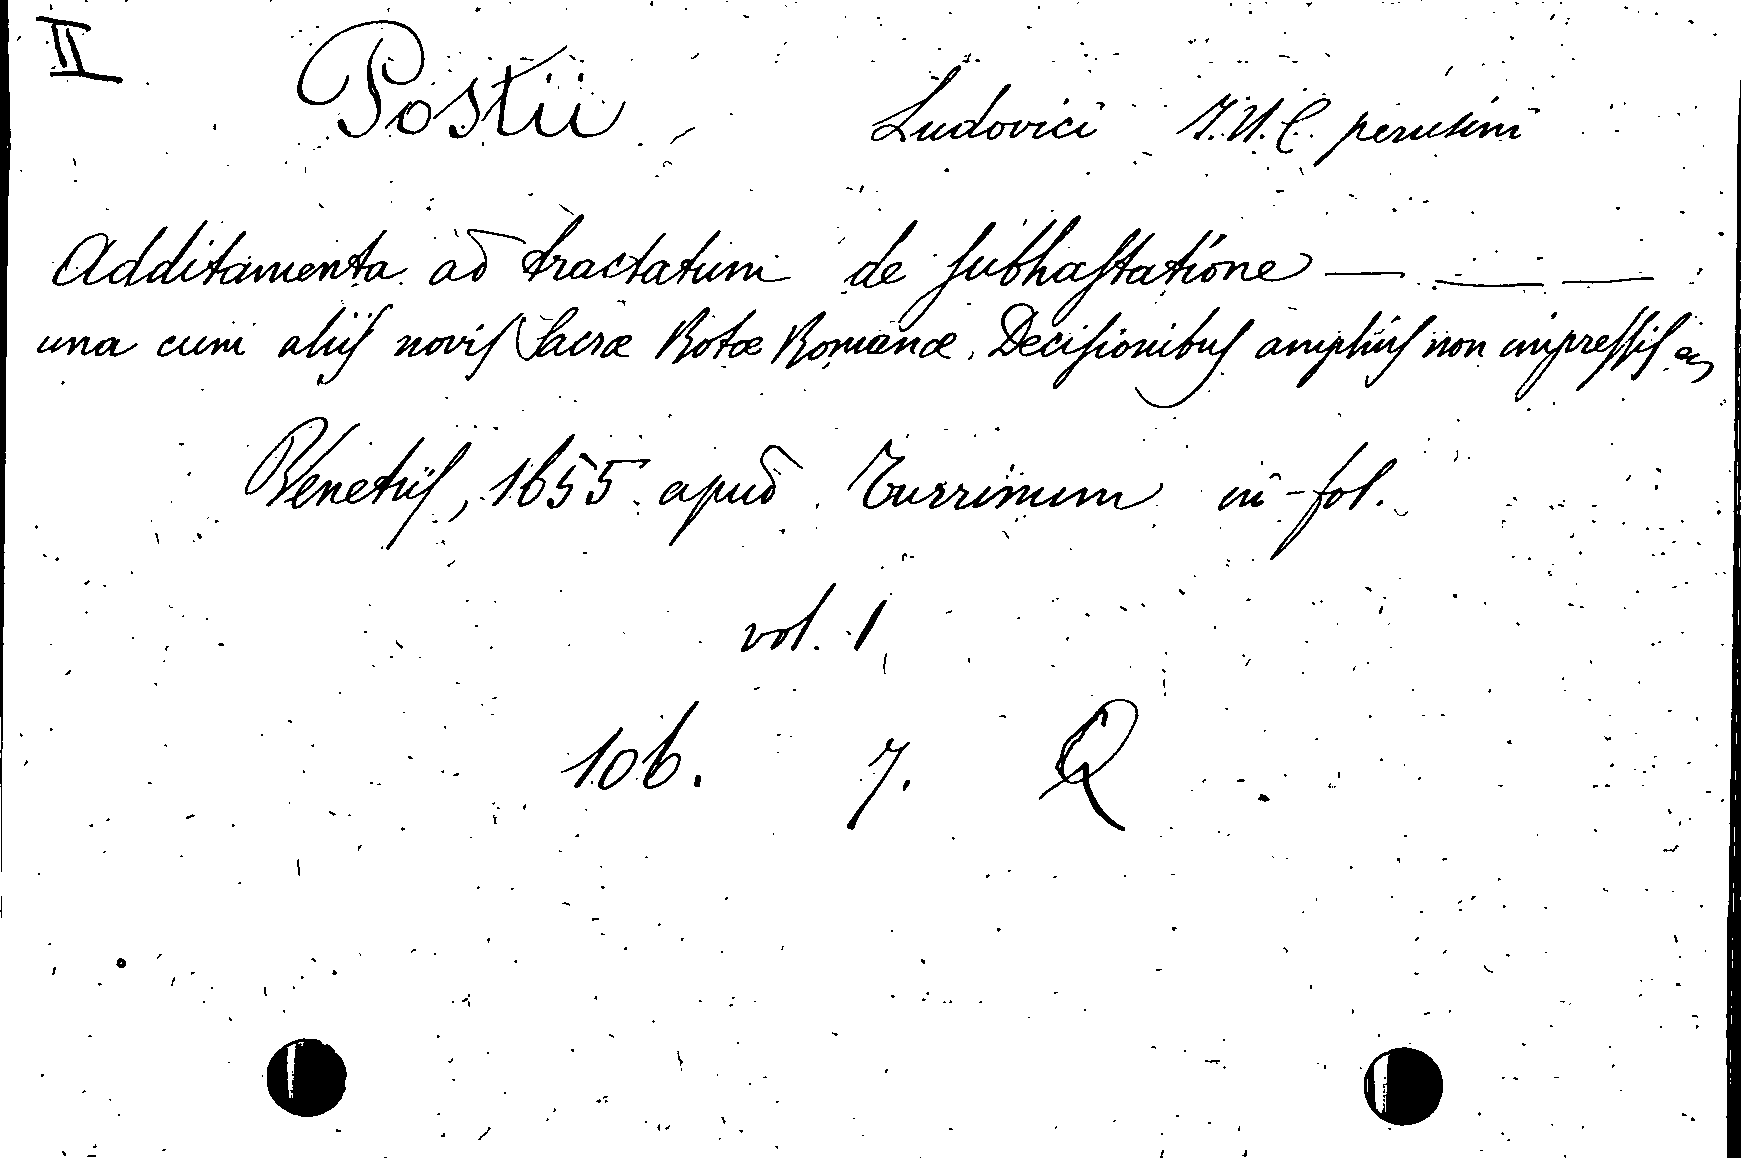 II
Postii, Ludovici J.U.C. perusini
Additamenta ad tractatum de subhastatione — — —
una cum aliis novis Sacræ Rotæ Romanæ Decisionibus amplius non impressis
Venetiis, 1655 apud Turrinum in-fol.
vol. 1
106. 7. Q